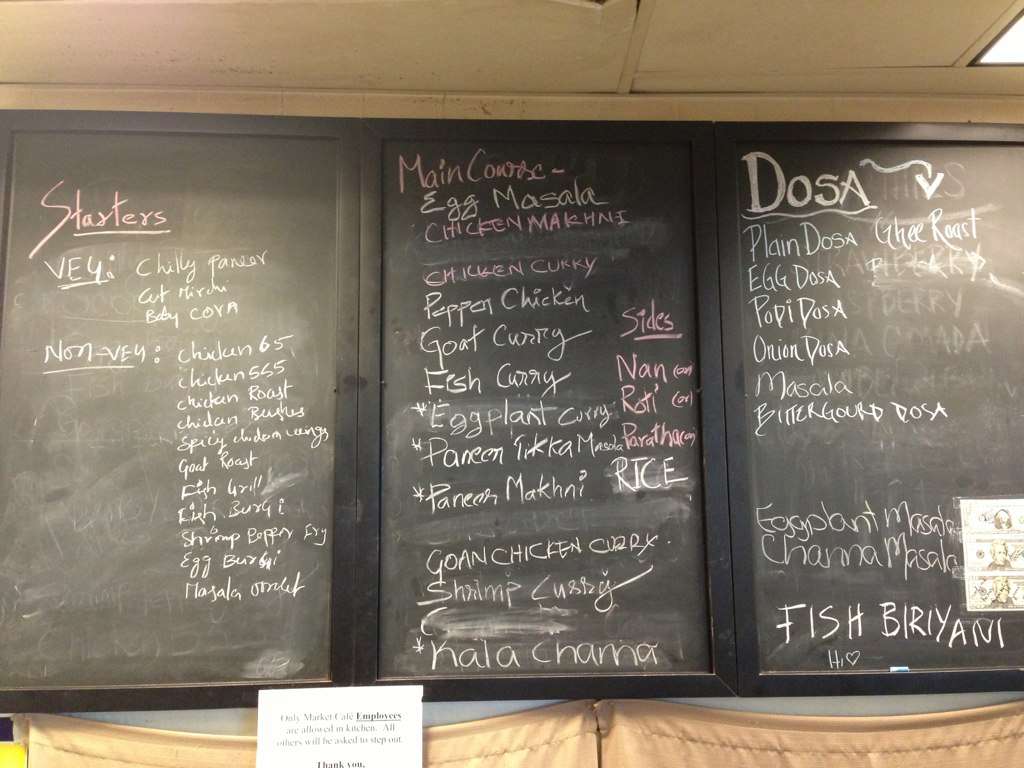 Starters
VEG: Chilly paneer
Cut Mirchi
Baby CORN
NON-VEG: chicken 65
chicken 555
chicken Roast
chicken
Spicy chicken wings
Goat Roast
Fish Grill
Fish Burgi
Shrimp Pepper Fry
Egg Burgi
Masala omlet
Main Course -
Egg Masala
CHICKEN MAKHNI
CHICKEN CURRY
Pepper Chicken
Goat Curry
Fish Curry
*Eggplant Curry
*Paneer Tikka Masala
*Paneer Makhni
GOAN CHICKEN CURRY.
Shrimp Curry
*Kala Chama
Sides
Nan (or)
Roti (or)
Paratha (or)
RICE
DOSA
Plain DOSA Ghee Roast
EGG DOSA
PODI DOSA
Onion DOSA
Masala
BITTERGOURD DOSA
Eggplant Masala
Channa Masala
FISH BIRIYANI
Hi ♡
Only Market Café Employees
are allowed in kitchen. All
others will be asked to step out.
Thank you.